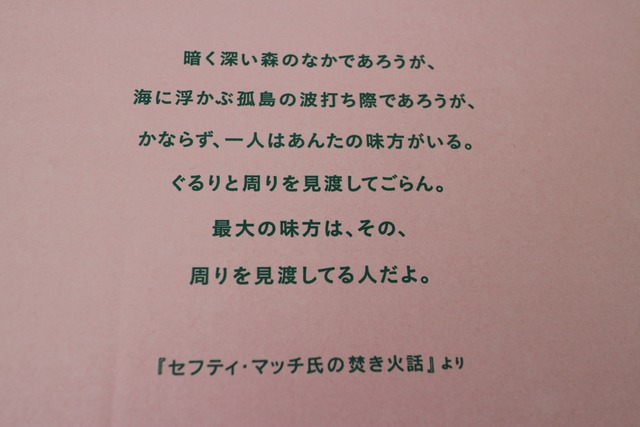 暗く深い森のなかであろうが、
海に浮かぶ孤島の波打ち際であろうが、
かならず、一人はあんたの味方がいる。
ぐるりと周りを見渡してごらん。
最大の味方は、その、
周りを見渡してる人だよ。
『セフティ・マッチ氏の焚き火話』より